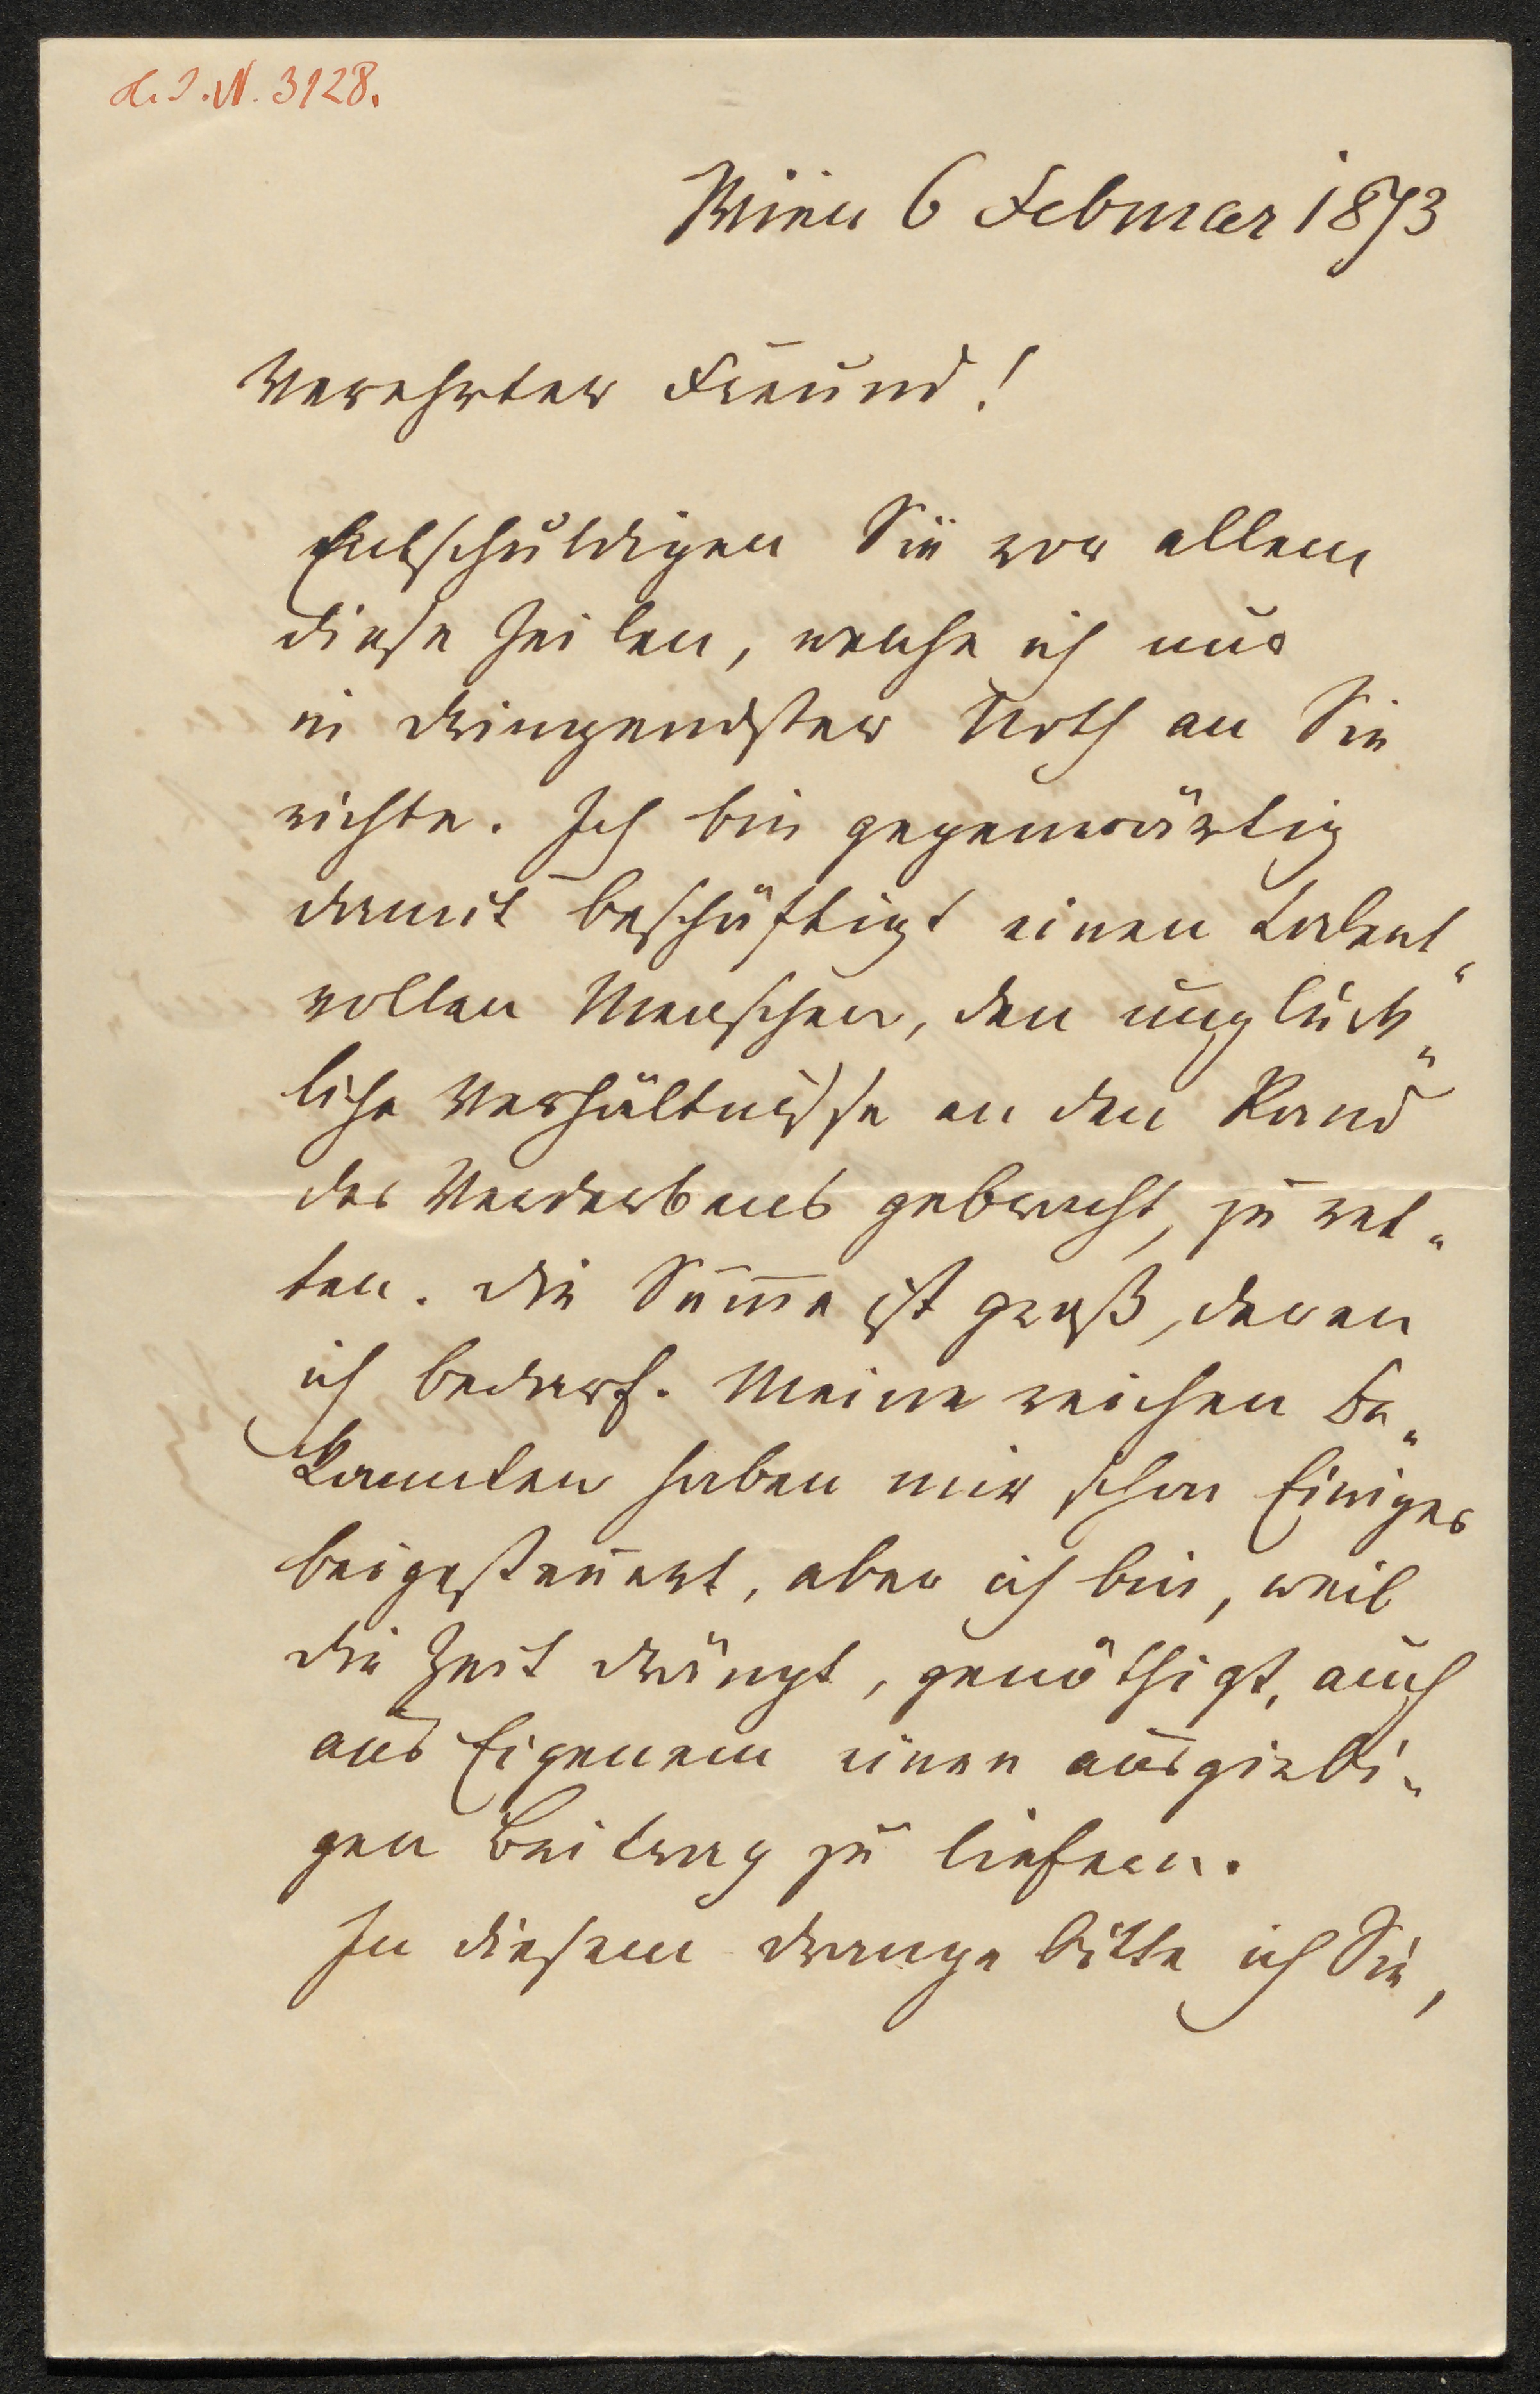 H. I. N. 3128.
Wien 6 Februar 1873
Verehrter Freund!
Entschuldigen Sie vor allem
diese Zeilen, welche ich nur
in dringendster Noth an Sie
richte. Ich bin gegenwärtig
damit beschäftigt einen talent„
vollen Menschen, den unglück„
liche Verhältnisse an den Rand
des Verderbens gebracht, zu ret„
ten. Die Sum̅e ist groß, deren
ich bedarf. Meine reichen Be„
kannten haben mir schon Einiges
beigesteuert, aber ich bin, weil
die Zeit drängt, genöthigt, auch
aus Eigenem einen ausgiebi„
gen Beitrag zu liefern.
In diesem Drange bitte ich Sie,